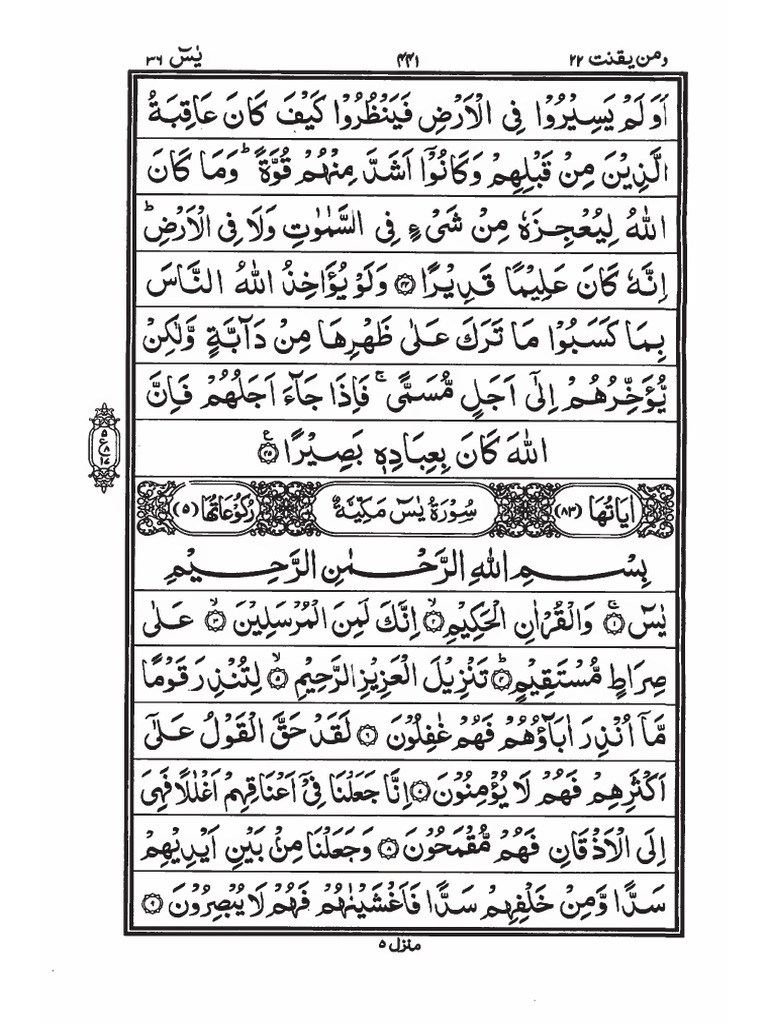 ومن يقنت ٢٢ ٤٤١ يٰسٓ ٣٦
اَوَلَمْ يَسِيْرُوْا فِى الْاَرْضِ فَيَنْظُرُوْا كَيْفَ كَانَ عَاقِبَةُ
الَّذِيْنَ مِنْ قَبْلِهِمْ وَكَانُوْٓا اَشَدَّ مِنْهُمْ قُوَّةً ؕ وَمَا كَانَ
اللّٰهُ لِيُعْجِزَهٗ مِنْ شَىْءٍ فِى السَّمٰوٰتِ وَلَا فِى الْاَرْضِ ؕ
اِنَّهٗ كَانَ عَلِيْمًا قَدِيْرًا ﴿٤٤﴾ وَلَوْ يُؤَاخِذُ اللّٰهُ النَّاسَ
بِمَا كَسَبُوْا مَا تَرَكَ عَلٰى ظَهْرِهَا مِنْ دَآبَّةٍ وَّلٰكِنْ
يُّؤَخِّرُهُمْ اِلٰٓى اَجَلٍ مُّسَمًّى ۚ فَاِذَا جَآءَ اَجَلُهُمْ فَاِنَّ
اللّٰهَ كَانَ بِعِبَادِهٖ بَصِيْرًا ﴿٤٥﴾ ع
٥
ع
٨
١٧
اٰيَاتُهَا (٨٣) سُوْرَةُ يٰسٓ مَكِّيَّةٌ رُكُوْعَاتُهَا (٥)
بِسْمِ اللّٰهِ الرَّحْمٰنِ الرَّحِيْمِ
يٰسٓ ۚ ﴿١﴾ وَالْقُرْاٰنِ الْحَكِيْمِ ۙ ﴿٢﴾ اِنَّكَ لَمِنَ الْمُرْسَلِيْنَ ۙ ﴿٣﴾ عَلٰى
صِرَاطٍ مُّسْتَقِيْمٍ ؕ ﴿٤﴾ تَنْزِيْلَ الْعَزِيْزِ الرَّحِيْمِ ۙ ﴿٥﴾ لِتُنْذِرَ قَوْمًا
مَّآ اُنْذِرَ اٰبَآؤُهُمْ فَهُمْ غٰفِلُوْنَ ﴿٦﴾ لَقَدْ حَقَّ الْقَوْلُ عَلٰٓى
اَكْثَرِهِمْ فَهُمْ لَا يُؤْمِنُوْنَ ﴿٧﴾ اِنَّا جَعَلْنَا فِىْٓ اَعْنَاقِهِمْ اَغْلٰلًا فَهِىَ
اِلَى الْاَذْقَانِ فَهُمْ مُّقْمَحُوْنَ ﴿٨﴾ وَجَعَلْنَا مِنْۢ بَيْنِ اَيْدِيْهِمْ
سَدًّا وَّمِنْ خَلْفِهِمْ سَدًّا فَاَغْشَيْنٰهُمْ فَهُمْ لَا يُبْصِرُوْنَ ﴿٩﴾
منزل ٥